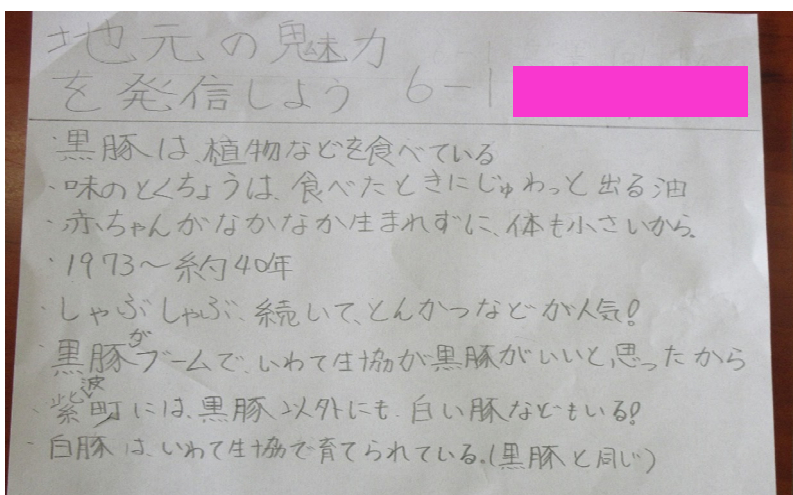 地元の魅力
を発信しよう 6-1
・黒豚は、植物などを食べている
・味のとくちょうは、食べたときにじゅわっと出る油
・赤ちゃんがなかなか生まれずに、体も小さいから。
・1973〜約40年
・しゃぶしゃぶ、続いて、とんかつなどが人気!
・黒豚がブームで、いわて生協が黒豚がいいと思ったから
・紫波町には、黒豚以外にも、白い豚などもいる!
・白豚は、いわて生協で育てられている。(黒豚と同じ)